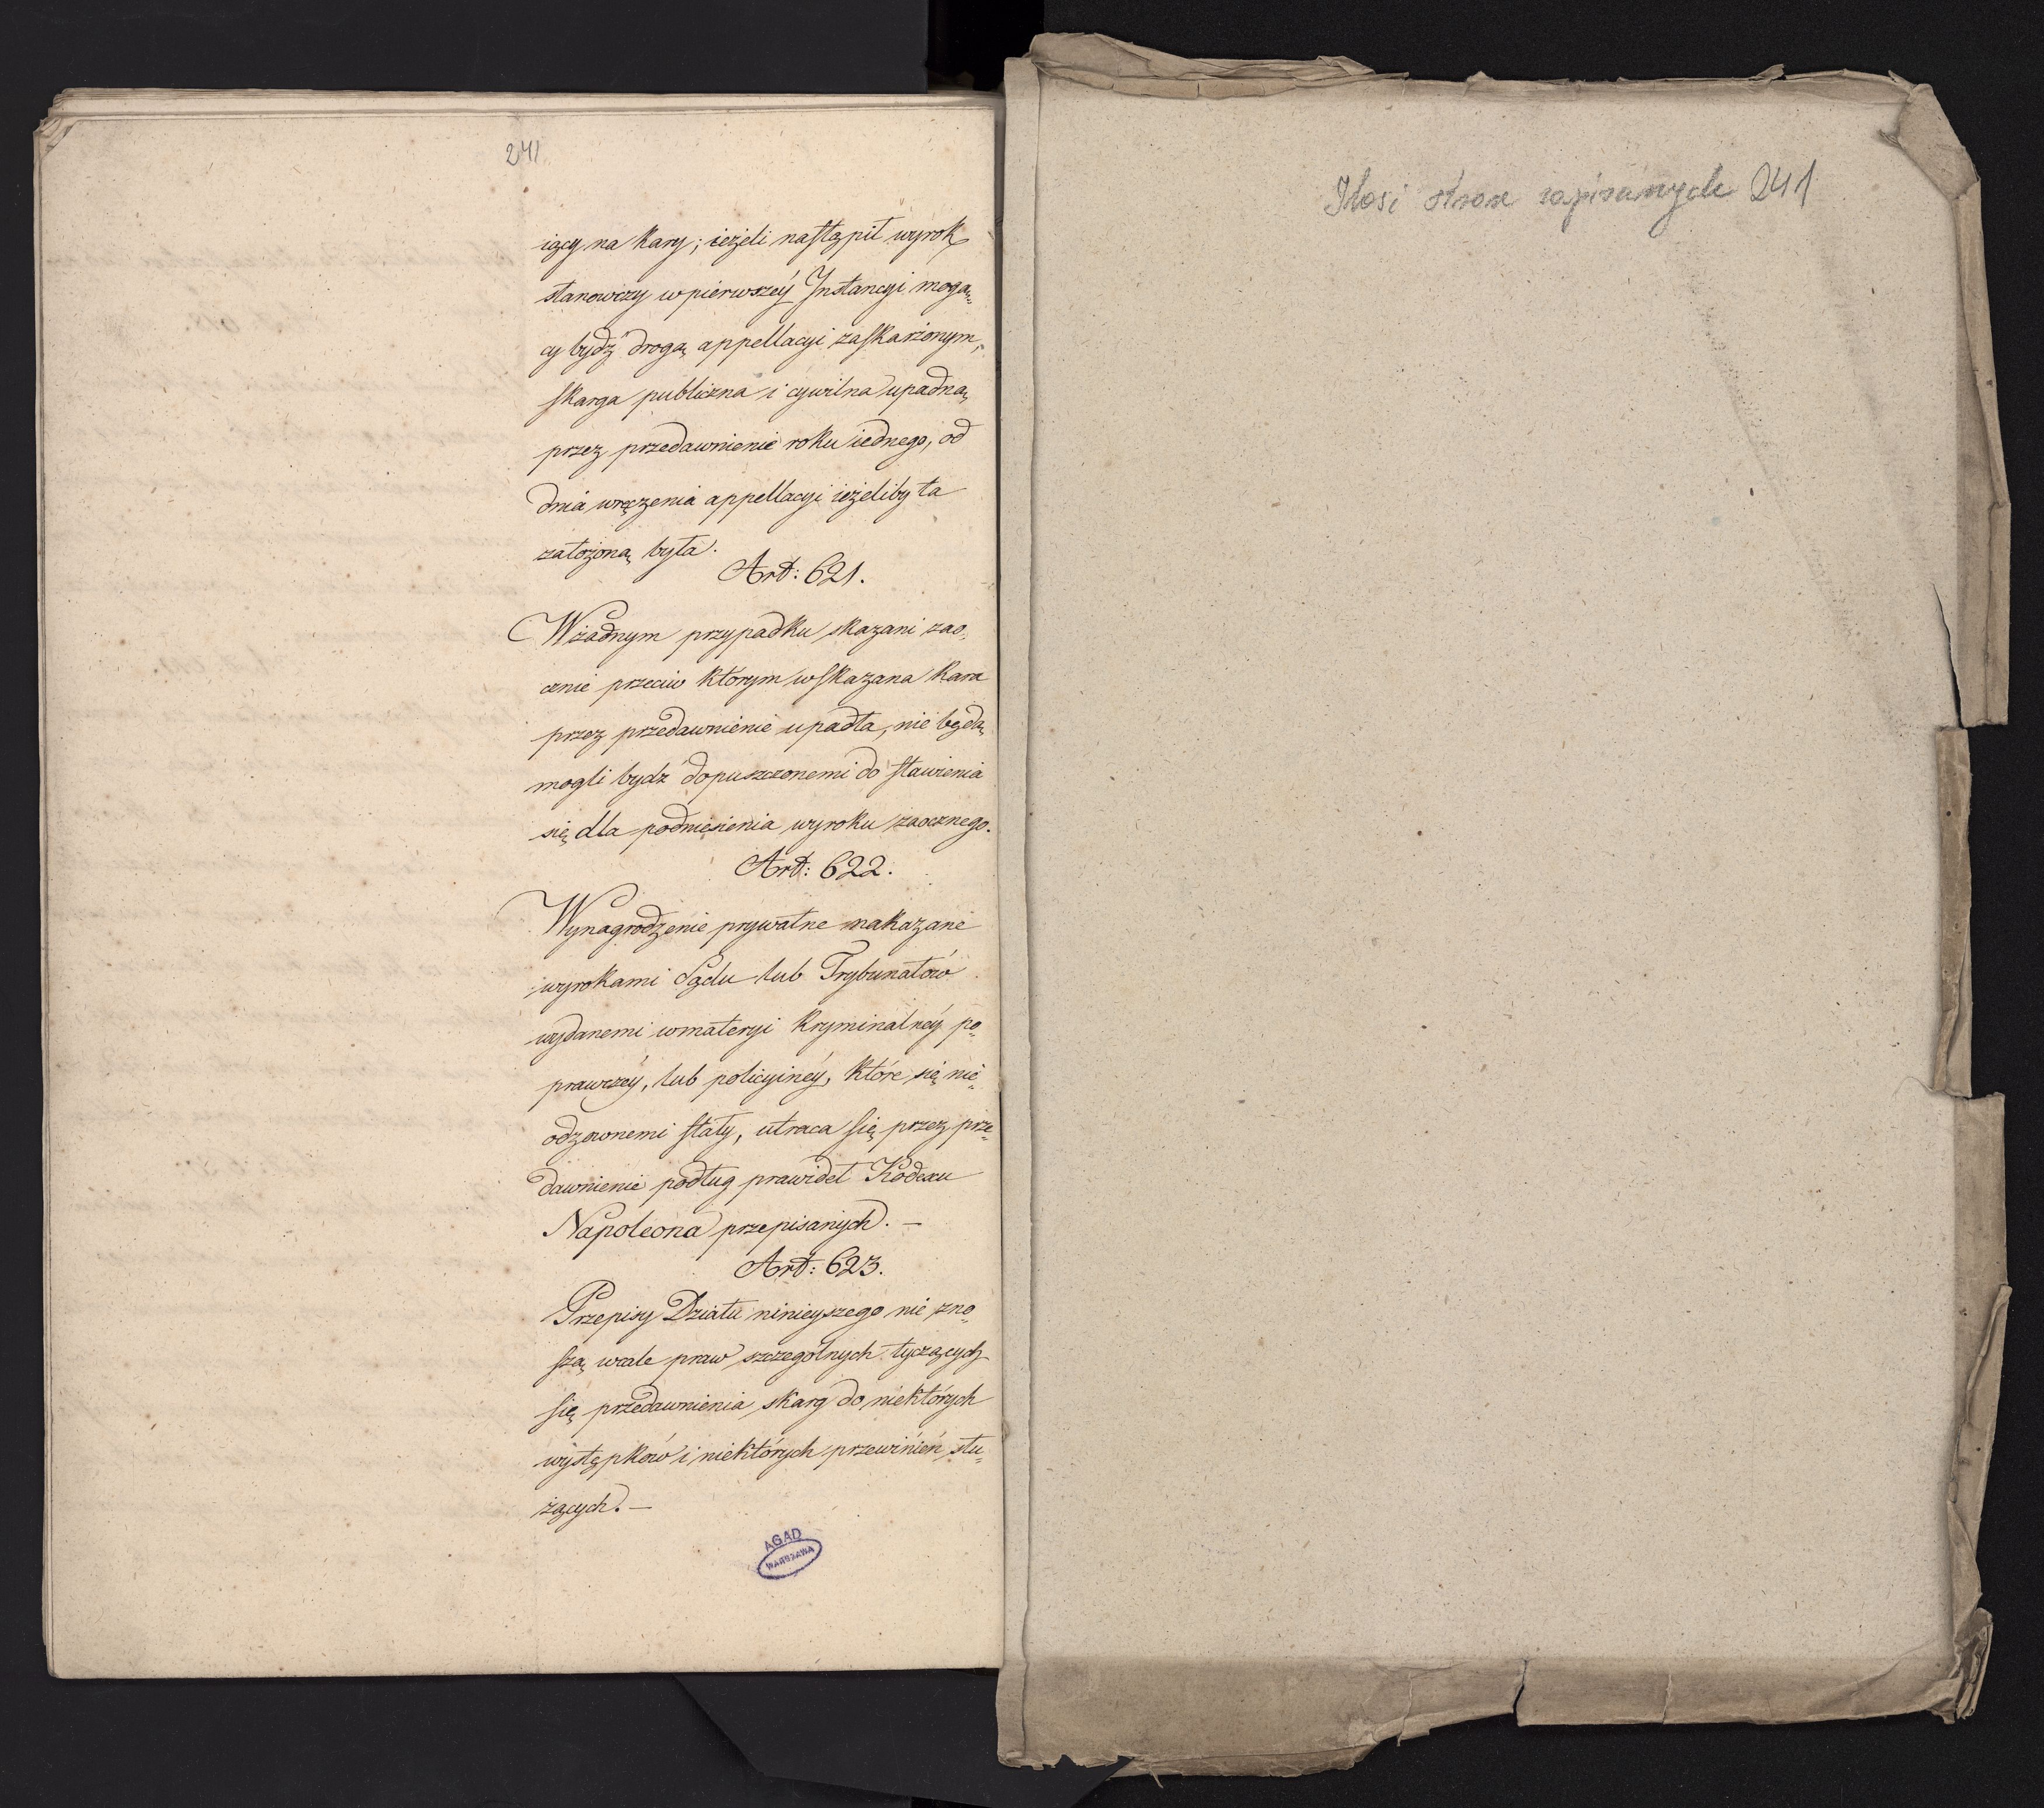 241
iący na kary; ieżeli nastąpił wyrok
stanowczy w pierwszéy Instancyi mogą„
cy bydź drogą appellacyi zaskarżonym,
skarga publiczna i cywilna upadną
przez przedawnienie roku iednego, od
dnia wręczenia appellacyi ieżeliby ta
założoną była.
Art: 621.
W żadnym przypadku skazani zao„
cznie przeciw którym wskazana kara
przez przedawnienie upadła, nie będą
mogli bydź dopuszczonemi do stawienia
się dla podniesienia wyroku zaocznego.
Art: 622.
Wynagrodzenie prywatne nakazane
wyrokami Sądu lub Trybunałów
wydanemi w materyi kryminalnéy po„
prawczéy, lub policyinéy, które się nie„
odzownemi stały, utraca się przez prze„
dawnienie podług prawideł Kodexu
Napoleona przepisanych. —
Art: 623.
Przepisy Działu ninieyszego nie zno„
szą wcale praw szczególnych tyczących
się przedawnienia skarg do niektórych
występków i niektórych przewinień słu„
żących. —
AGAD
WARSZAWA
Ilosi stron zapisanych 241